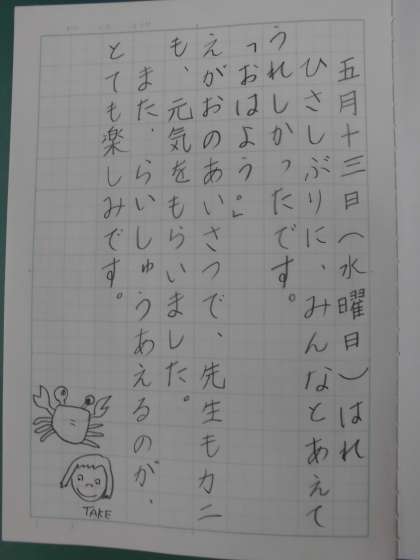 五月十三日（水曜日）はれ
ひさしぶりに、みんなとあえて
うれしかったです。
「おはよう。」
えがおのあいさつで、先生もカニ
も、元気をもらいました。
また、らいしゅうあえるのが、
とても楽しみです。
TAKE